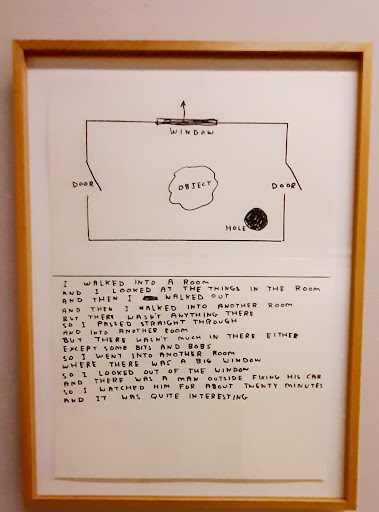 WINDOW
DOOR
OBJECT
DOOR
HOLE
I WALKED INTO A ROOM
AND I LOOKED AT THE THINGS IN THE ROOM
AND THEN I WALKED OUT
AND THEN I WALKED INTO ANOTHER ROOM
BUT THERE WASN'T ANYTHING THERE
SO I PASSED STRAIGHT THROUGH
AND INTO ANOTHER ROOM
BUT THERE WASN'T MUCH IN THERE EITHER
EXCEPT SOME BITS AND BOBS
SO I WENT INTO ANOTHER ROOM
WHERE THERE WAS A BIG WINDOW
SO I LOOKED OUT OF THE WINDOW
AND THERE WAS A MAN OUTSIDE FIXING HIS CAR
SO I WATCHED HIM FOR ABOUT TWENTY MINUTES
AND IT WAS QUITE INTERESTING